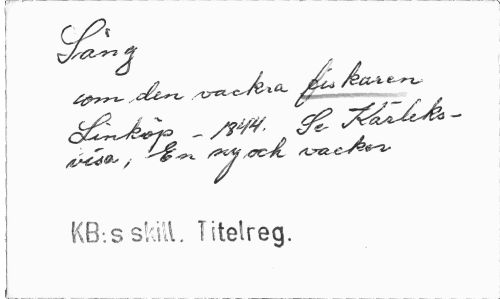 Sång
om den vackra fiskaren
Linköp – 1844. Se Kärleks-
visa, En ny och vacker
KB:s skill. Titelreg.